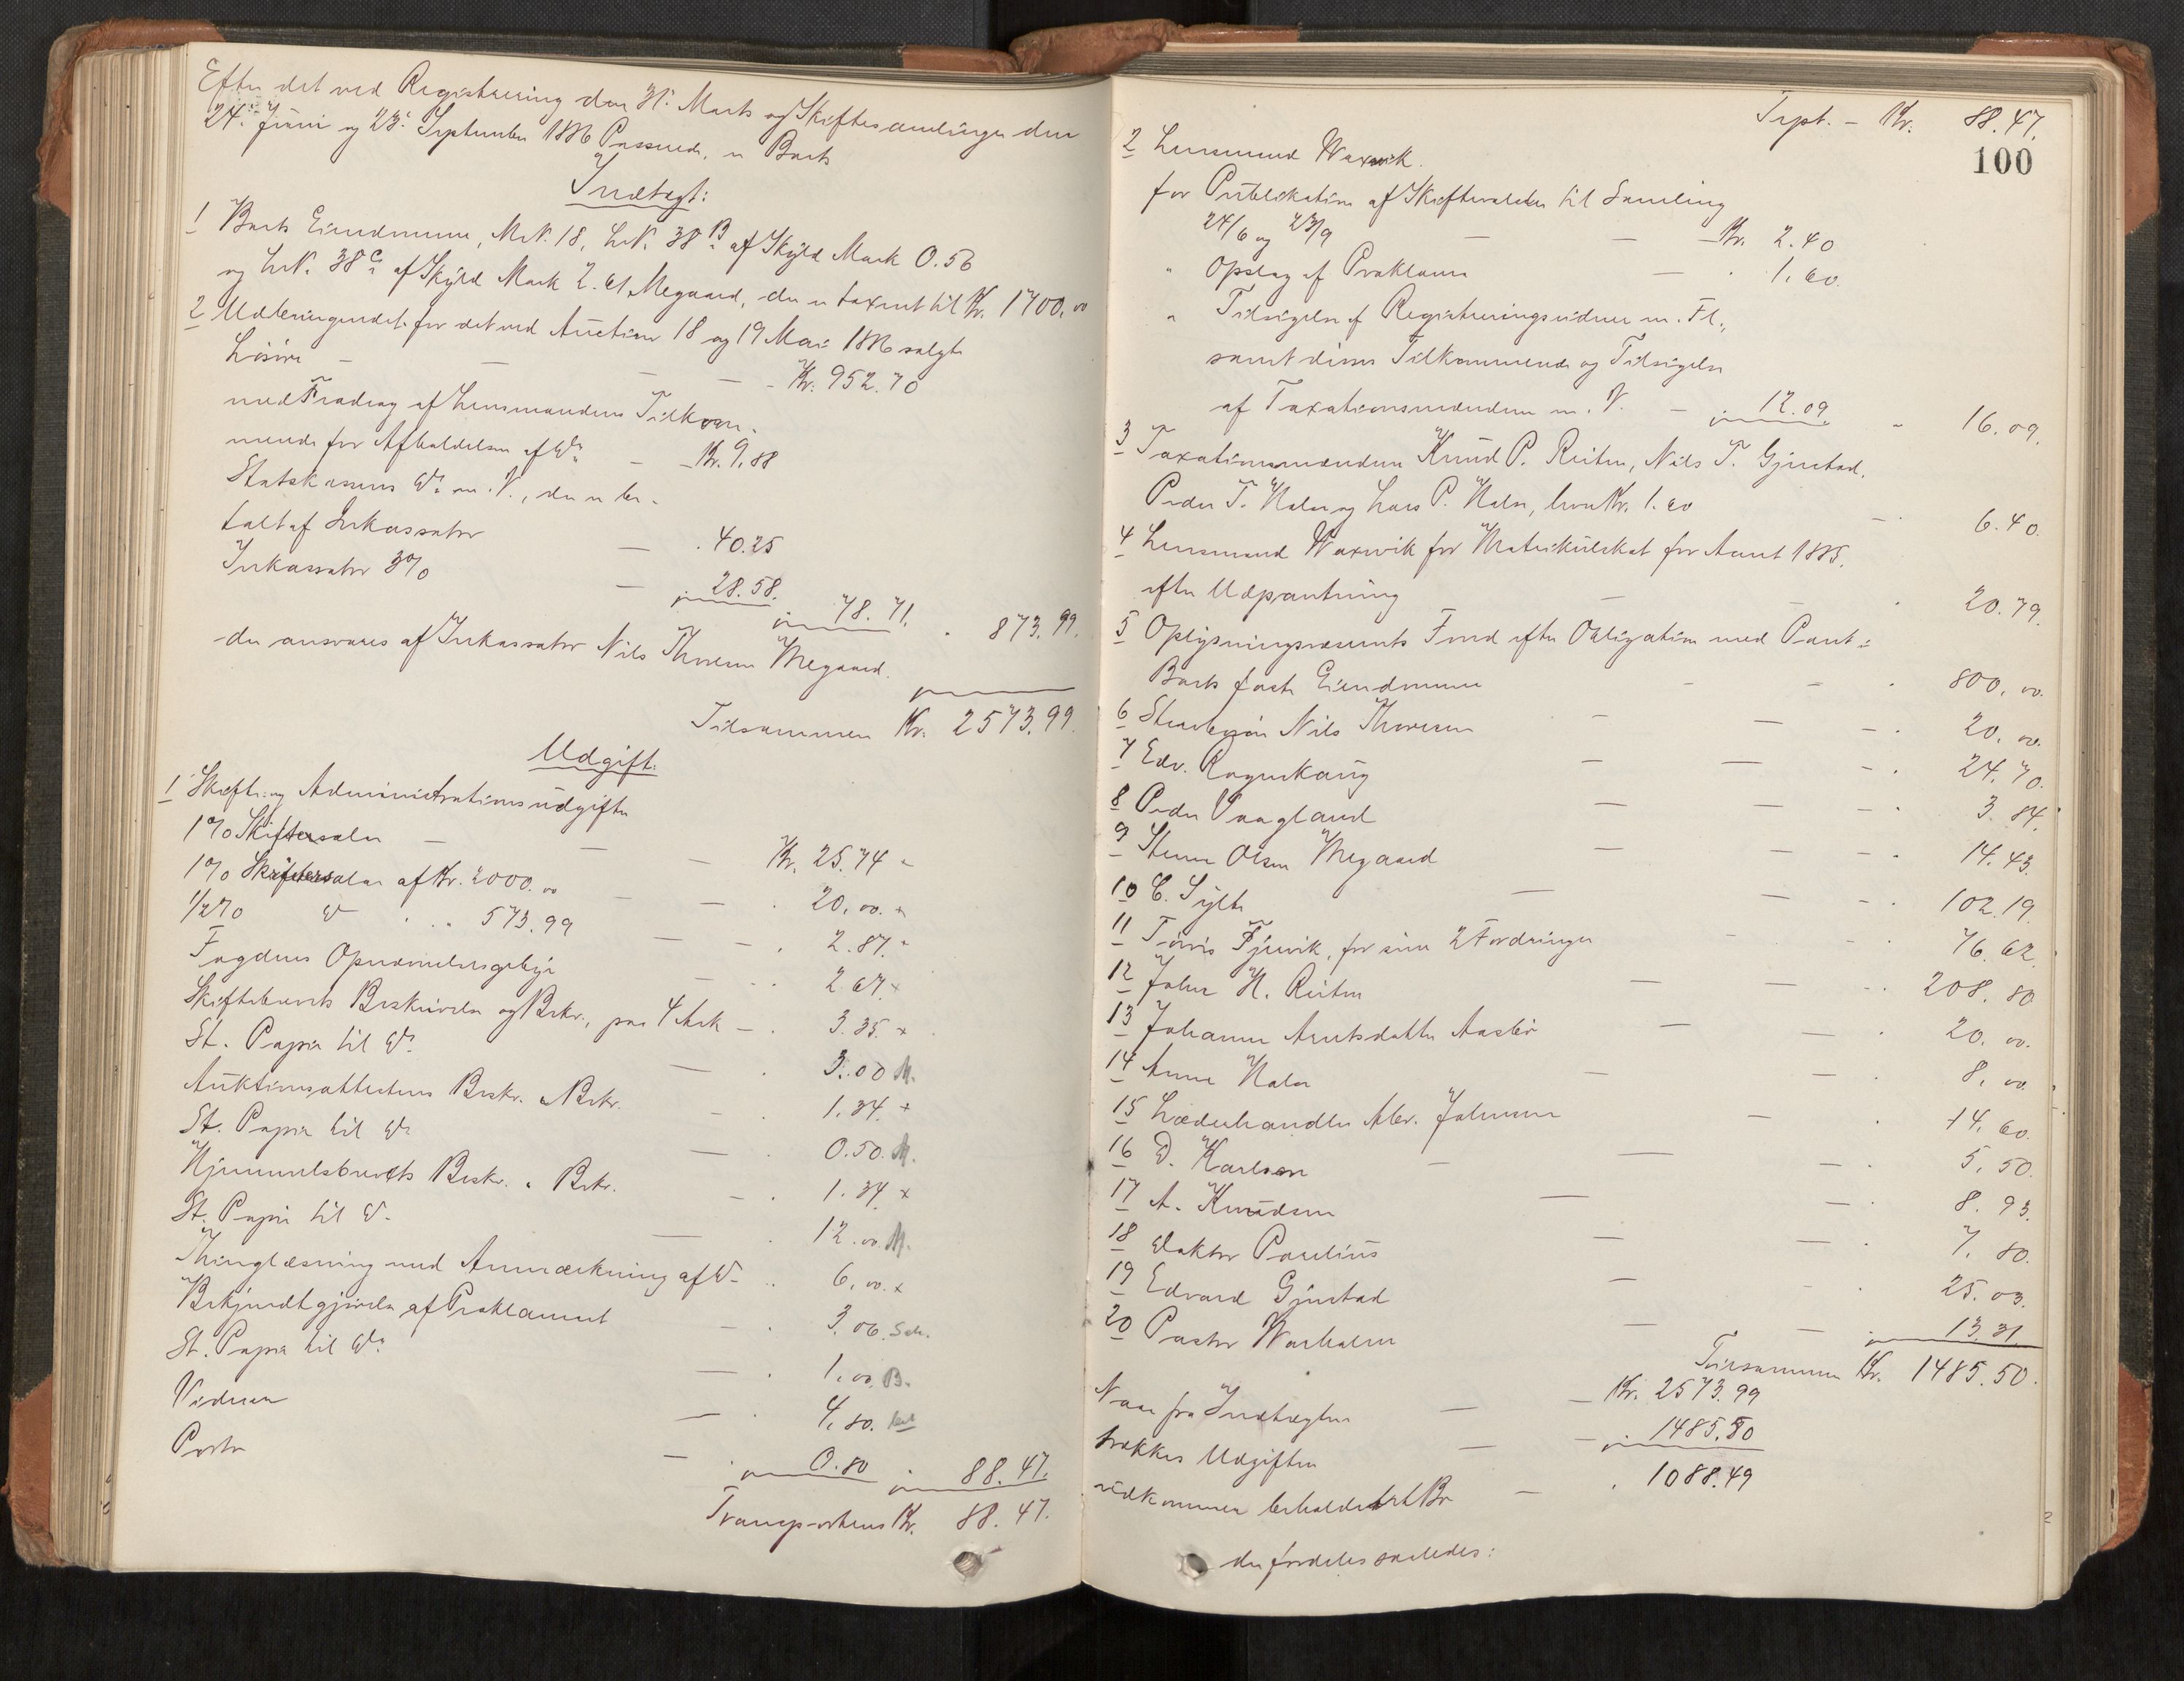 Efter det ved Registrering den 31. Marts og Skiftesamlinger den
24. Juni og 23. September 1886 Passerede, er Boets
Indtægt:
1 Boets Eiendomme, M.N. 18, L.N. 38 B af Skyld Mark 0.56
og L.N. 38 C af Skyld Mark 2.61, Megaard, der er taxeret til Kr. 1700.00
2 Udbringendet for det ved Auction 18 og 19 Mai 1886 solgte
Løsøre – – – – Kr. 952.70
med Fradrag af Lensmandens Tilkom-
mende for Afholdelsen af Do – Kr. 9.88
Statskassens Do m. V., der er be-
talt af Inkassator – 40.25
Inkassator 3% – 28.58.
78.71. 873.99.
der ansvares af Inkassator Nils Thoresen Megaard.
Tilsammen Kr. 2573.99.
Udgift:
1 Skifte- og Administrationsudgifter
1% Skiftesalær – – – Kr. 25.74
1% Skriversalær af Kr. 2000.00 – – 20.00.
1/2% Do 573.99 – – 2.87.
Fogdens Opnævnelsesgebyr – 2.67. x
Skiftebrevets Beskrivelse og Bekr., paa 4 Ark – 3.35. x
St. Papir til Do – 3.00 M.
Auktionsattestens Beskr. & Bekr. – 1.34. +
St. Papir til Do – 0.50. M.
Hjemmelsbrevets Beskr. & Bekr. – 1.34 x
St. Papir til Do – 12.00. M.
Thinglæsning med Anmærkning af Do – 6.00. x
Bekjendtgjørelse af Proklamaet – 3.06. Sch.
St. Papir til Do – 1.00. B.
Vidner – 4.80.
Porto – 0.80 88.47.
Transporteres Kr. 88.47.
Trpt. – Kr. 88.47.
100
2 Lensmand Waxvik.
for Publikation af Skiftevalder til Samling
24/6 og 23/9 – – Kr. 2.40
" Opslag af Proklama – 1.60.
" Tilsigelse af Registreringsvidner m. Fl.,
samt disses Tilkommende og Tilsigelse
af Taxationsmændene m. V. – 12.09. " 16.09.
3 Taxationsmændene Knud P. Reiten, Nils T. Gjerstad,
Peder T. Halse og Lars P. Halse, hver Kr. 1.60 – 6.40.
4 Lensmand Waxvik for Matrikulskat for Aaret 1885,
efter Udpantning – – 20.79.
5 Oplysningsvæsenets Fond efter Obligation med Pant i
Boets faste Eiendomme – – 800.00.
6 Stervbøn Nils Thoresen – – – 20.00.
7 Edv. Rognskaug – – – 24.70.
8 Peder Vaagland – – – 3.84.
9 Steener Olsen Megaard – – – 14.43.
10 C. Sylte – – – 102.19.
11 Tøris Fjervik, for sine 2 Fordringer – – 76.62.
12 Johan H. Reiten – – – 208.80
13 Johanne Arntsdatter Aasbø – – 20.00.
14 Anne Halse – – 8.00.
15 Læderhandler Abr. Johnsen – 14.60.
16 D. Karlsen – – 5.50.
17 A. Knudsen – – 8.93.
18 Doktor Paulius – – 7.80.
19 Edvard Gjerstad – 25.03.
20 Pastor Warholm – – 13.31
Tilsammen Kr. 1485.50.
Naar fra Indtægten – – Kr. 2573.99
trækkes Udgiften – – 1485.50
vedkommer beholdet Bo – 1088.49
der fordeles saaledes: